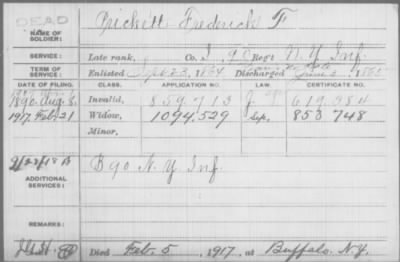 DEAD
NAME OF SOLDIER: Prickett Frederick F
SERVICE: Late rank, Co. I, 98 Reg't N.Y. Inf.
TERM OF SERVICE: Enlisted Sept. 23, 1864 Discharged June 2, 1865
DATE OF FILING. CLASS. APPLICATION NO. LAW. CERTIFICATE NO.
1890, Aug. 8. Invalid, 859,713 J. 619,984
1917, Feb. 21 Widow, 1094,529 Sep. 853 748
Minor,
ADDITIONAL SERVICES: B 90 N.Y. Inf.
REMARKS:
Died Feb. 5, 1917, at Buffalo, N.Y.